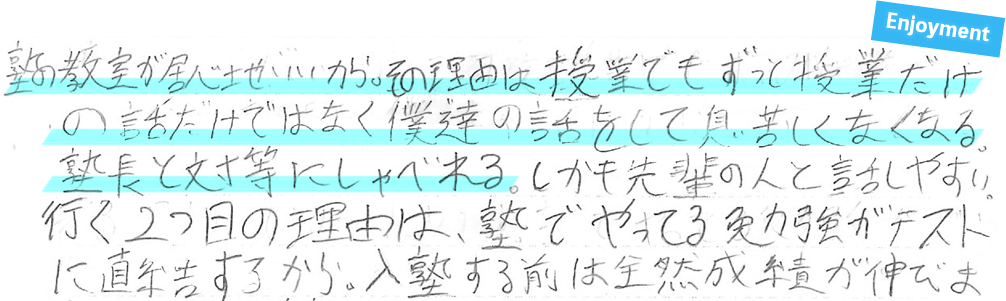 Enjoyment
塾の教室が居心地がいいから。その理由は授業でもずっと授業だけ
の話だけではなく僕達の話をして息苦しくなくなる。
塾長と対等にしゃべれる。しかも先輩の人と話しやすい。
行く2つ目の理由は、塾でやってる勉強がテスト
に直結するから。入塾する前は全然成績が伸びま